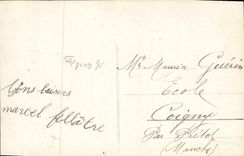 Bons baisers
marcel
Mr Maurice Guérin
Ecole
Coigny
Par Prétot
(Manche)